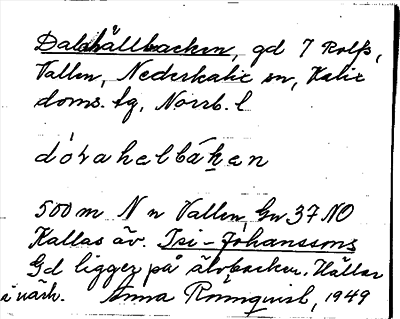 Dalahällbacken, gd 7 Rolfs,
Vallen, Nederkalix sn, Kalix
doms. tg, Norrb. l
dóɾahelbáken
500 m N n Vallen, Gv 37 NO
Kallas äv. Isi-Johanssons
Gd ligger på älvbacken. Hällar
i närh. Anna Rönnquist, 1949